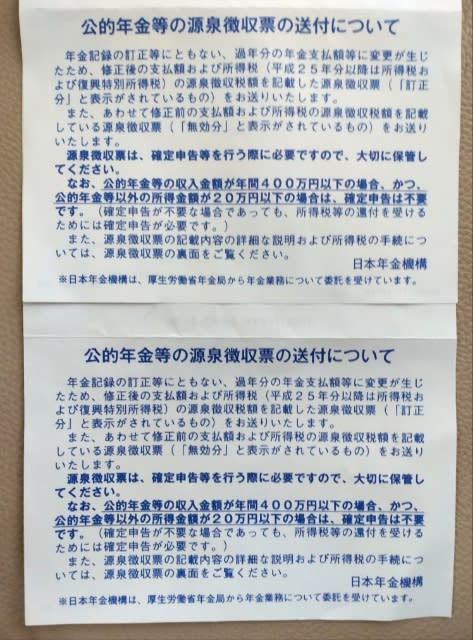 公的年金等の源泉徴収票の送付について
年金記録の訂正等にともない、過年分の年金支払額等に変更が生じ
たため、修正後の支払額および所得税（平成２５年分以降は所得税お
よび復興特別所得税）の源泉徴収税額を記載した源泉徴収票（「訂正
分」と表示がされているもの）をお送りいたします。
また、あわせて修正前の支払額および所得税の源泉徴収税額を記載
している源泉徴収票（「無効分」と表示がされているもの）をお送り
いたします。
源泉徴収票は、確定申告等を行う際に必要ですので、大切に保管し
てください。
なお、公的年金等の収入金額が年間４００万円以下の場合、かつ、
公的年金等以外の所得金額が２０万円以下の場合は、確定申告は不要
です。（確定申告が不要な場合であっても、所得税等の還付を受ける
ためには確定申告が必要です。）
また、源泉徴収票の記載内容の詳細な説明および所得税の手続につ
いては、源泉徴収票の裏面をご覧ください。
日本年金機構
※日本年金機構は、厚生労働省年金局から年金業務について委託を受けています。
公的年金等の源泉徴収票の送付について
年金記録の訂正等にともない、過年分の年金支払額等に変更が生じ
たため、修正後の支払額および所得税（平成２５年分以降は所得税お
よび復興特別所得税）の源泉徴収税額を記載した源泉徴収票（「訂正
分」と表示がされているもの）をお送りいたします。
また、あわせて修正前の支払額および所得税の源泉徴収税額を記載
している源泉徴収票（「無効分」と表示がされているもの）をお送り
いたします。
源泉徴収票は、確定申告等を行う際に必要ですので、大切に保管し
てください。
なお、公的年金等の収入金額が年間４００万円以下の場合、かつ、
公的年金等以外の所得金額が２０万円以下の場合は、確定申告は不要
です。（確定申告が不要な場合であっても、所得税等の還付を受ける
ためには確定申告が必要です。）
また、源泉徴収票の記載内容の詳細な説明および所得税の手続につ
いては、源泉徴収票の裏面をご覧ください。
日本年金機構
※日本年金機構は、厚生労働省年金局から年金業務について委託を受けています。